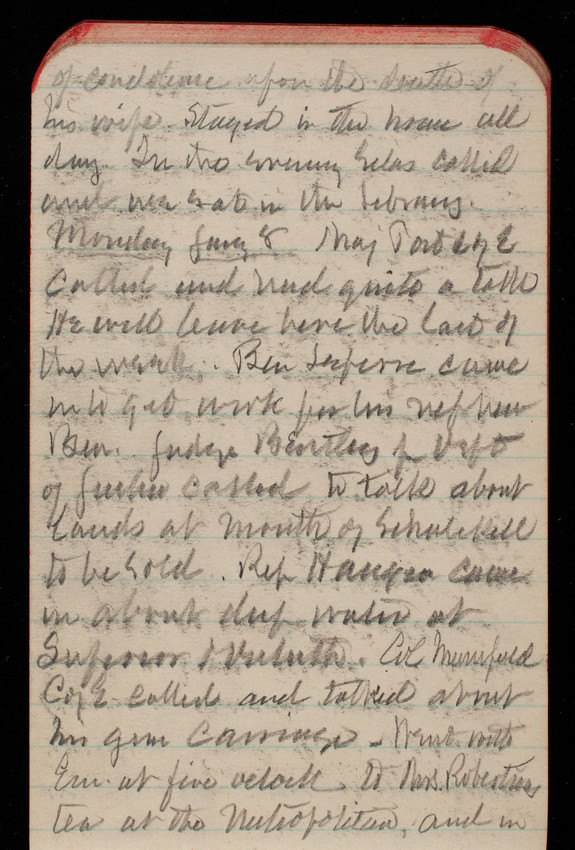 of condolence upon the death of
his wife. Stayed in the house all
day. In the evening Silas called
and we sat in the library.
Monday Jany 8 Maj Post C of E
called and had quite a talk
He will leave here the last of
the week. Ben came
in to get work for his nephew
Ben. Judge Bentley Dept
of Justice called to talk about
lands at mouth of Schuylkill
to be sold. Rep Haugen came
in about deep water at
Superior & Duluth. Col Mumford
C of E called and talked about
his gun carriage - Went with
Em. at five oclock to Mrs. Robertsons
tea at the Metropolitan, and in